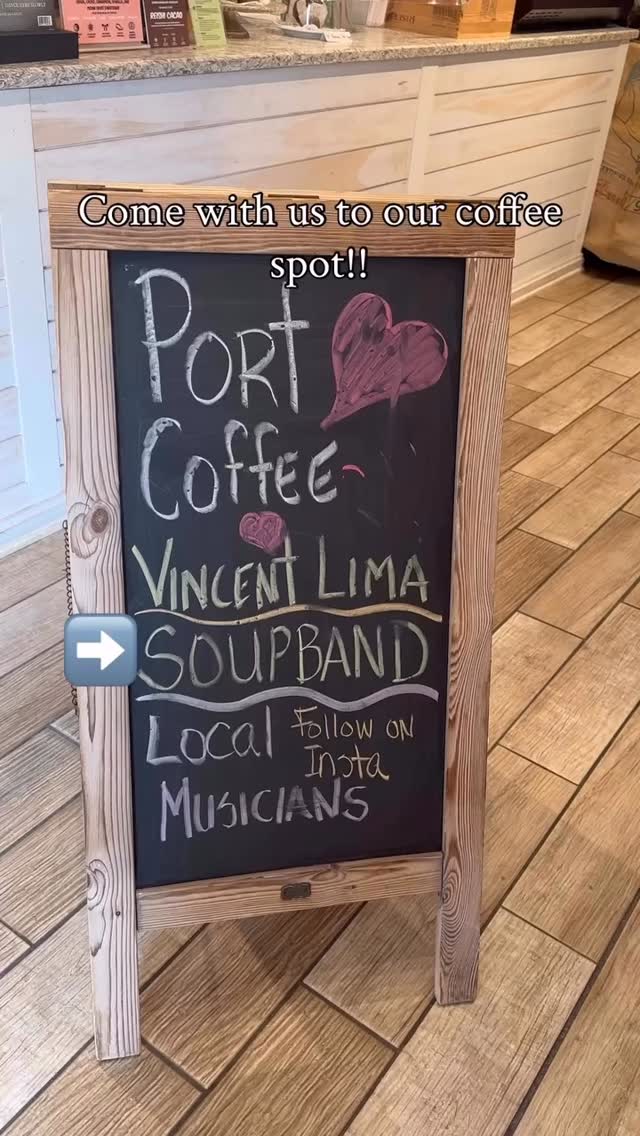 Come with us to our coffee
spot!!
PORT
COFFEE
VINCENT LIMA
SOUPBAND
LOCAL
FOLLOW ON
INSTA
MUSICIANS